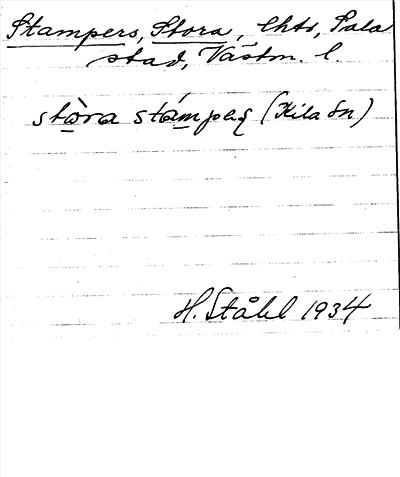 Stampers, Stora, Ehts, Sala
stad, Västm. l.
stòra stámpeʂ (Kila sn)
H. Ståhl 1934